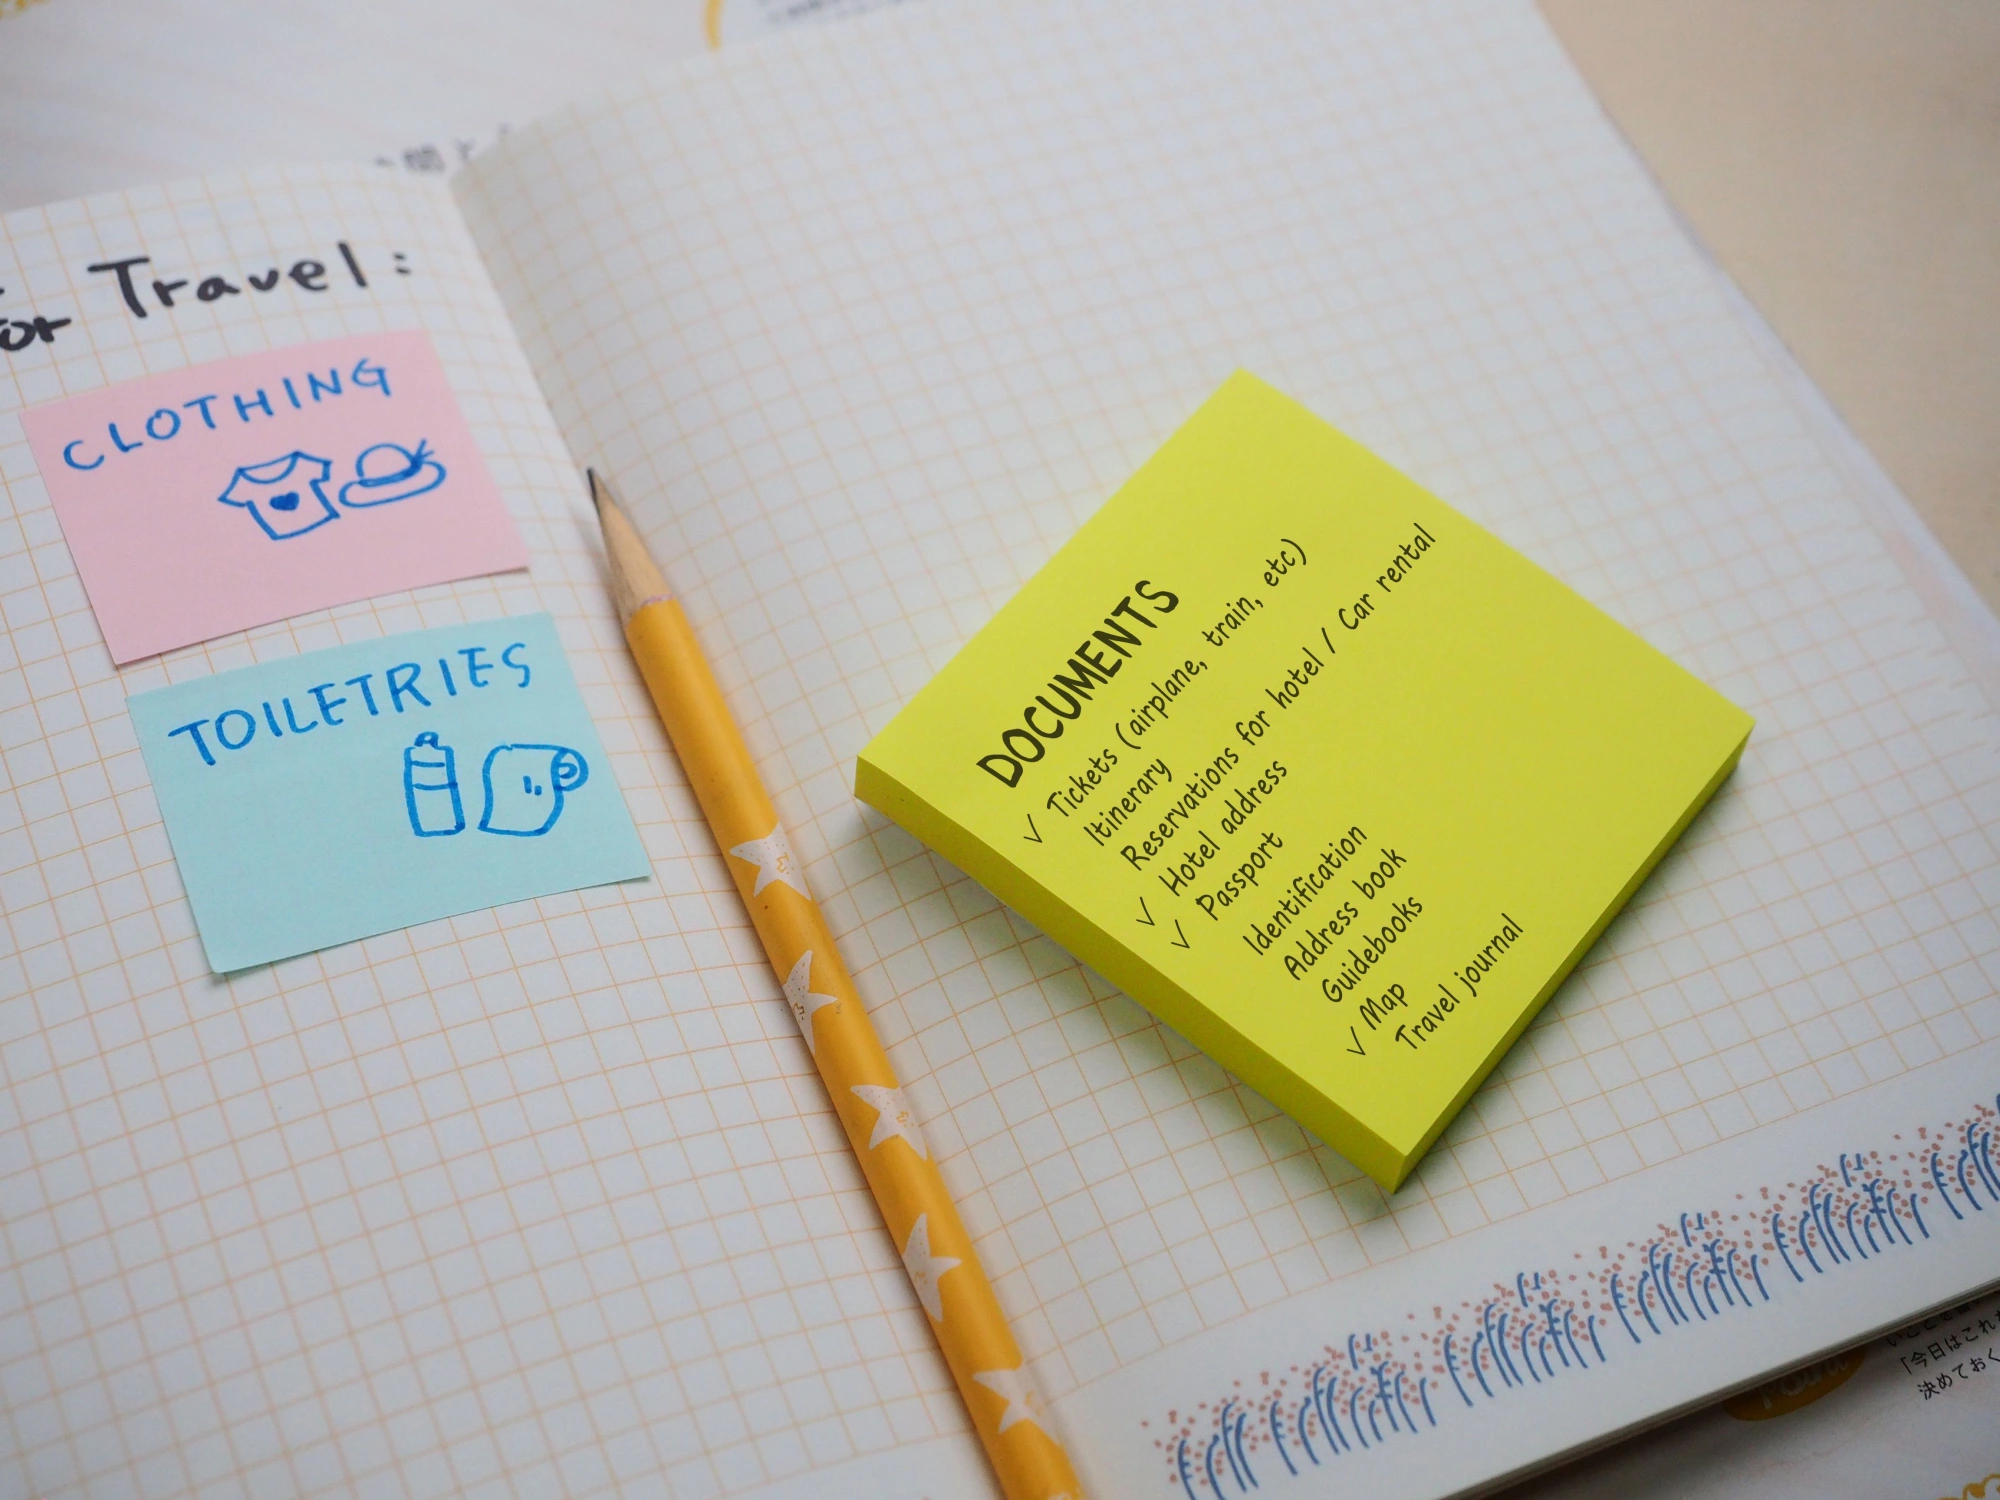 for Travel:
CLOTHING
TOILETRIES
DOCUMENTS
✓ Tickets (airplane, train, etc)
Itinerary
Reservations for hotel / Car rental
✓ Hotel address
✓ Passport
Identification
Address book
Guidebooks
✓ Map
Travel journal
「今日はこれ
決めておく